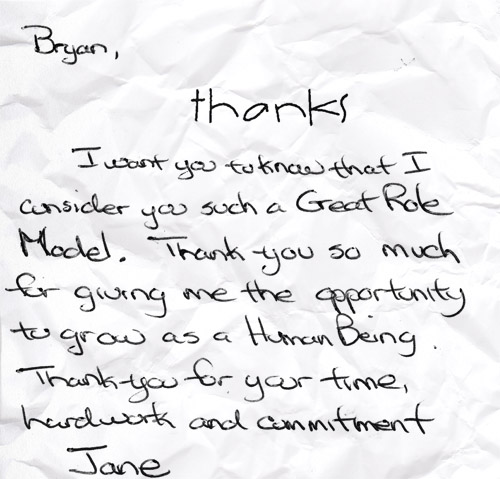 Bryan,
thanks
I want you to know that I
consider you such a Great Role
Model. Thank you so much
for giving me the opportunity
to grow as a Human Being.
Thank-you for your time,
hardwork and commitment
Jane